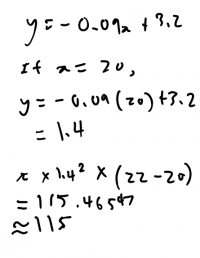 y = - 0.09x + 3.2
If x = 20,
y = - 0.09 (20) + 3.2
= 1.4
π x 1.4² x (22 - 20)
= 115.4654
≈ 115